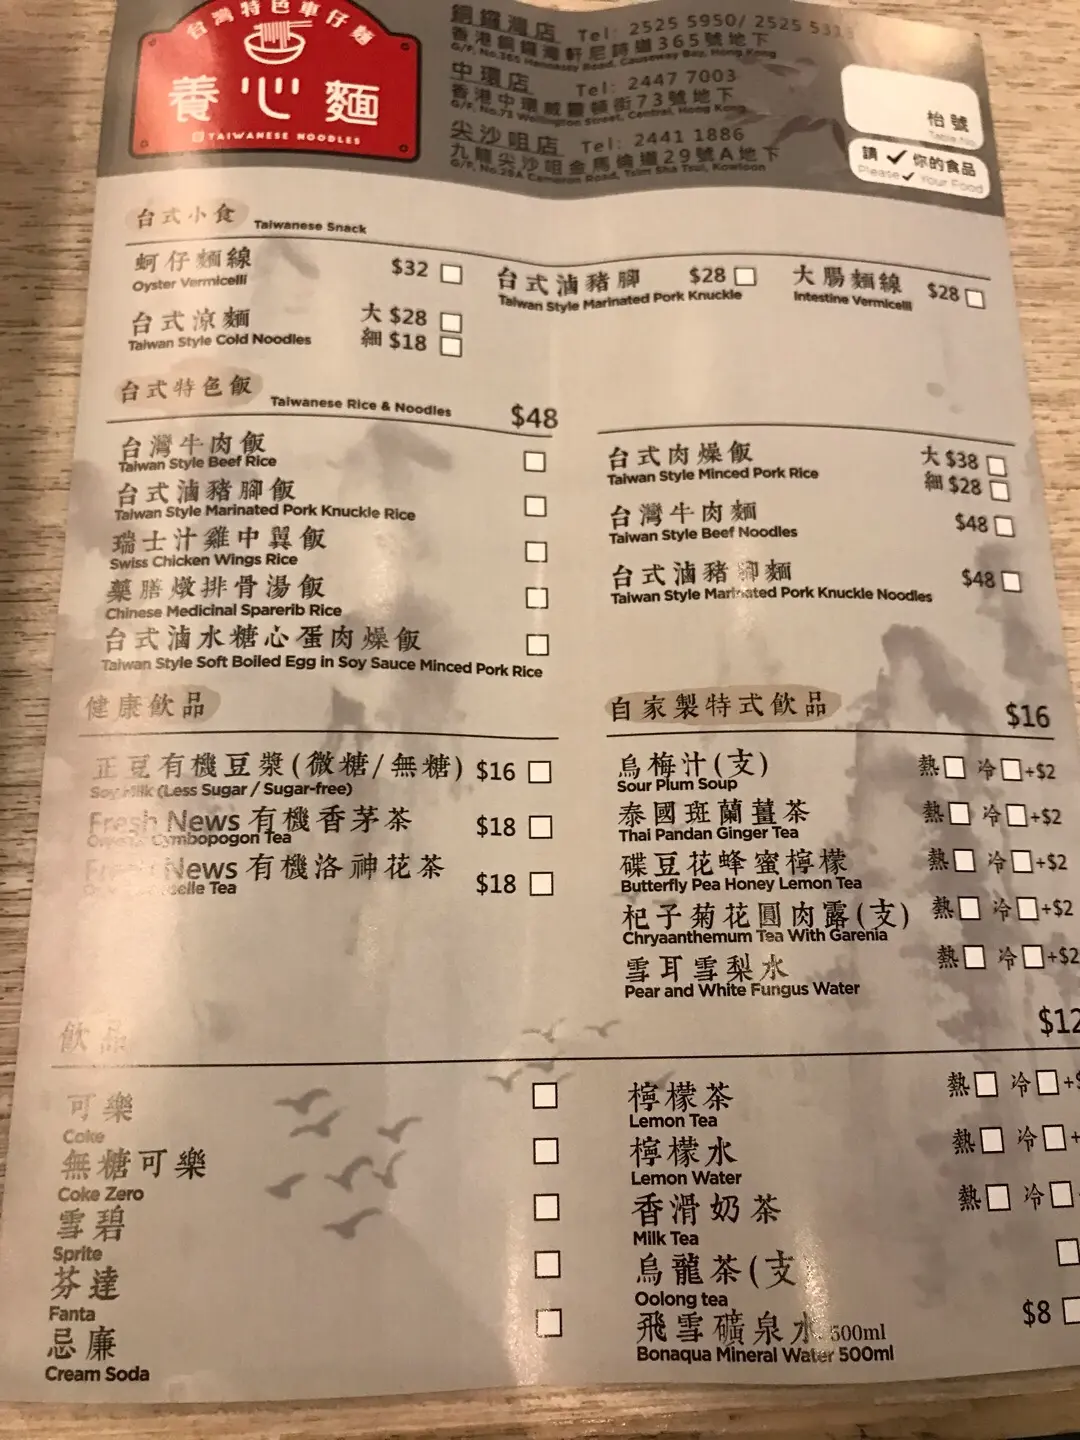 台灣特色車仔麵
養心麵
TAIWANESE NOODLES
銅鑼灣店 Tel: 2525 5950/ 2525 531
香港銅鑼灣軒尼詩道365號地下
G/F, No.365 Hennessy Road, Causeway Bay, Hong Kong
中環店 Tel: 2447 7003
香港中環威靈頓街73號地下
G/F, No.73 Wellington Street, Central, Hong Kong
尖沙咀店 Tel: 2441 1886
九龍尖沙咀金馬倫道29號A地下
G/F, No.29A Cameron Road, Tsim Sha Tsui, Kowloon
枱號
Table No.
請 ✓ 你的食品
Please ✓ Your Food
台式小食 Taiwanese Snack
蚵仔麵線 $32
Oyster Vermicelli
台式滷豬腳 $28
Taiwan Style Marinated Pork Knuckle
大腸麵線 $28
Intestine Vermicelli
台式涼麵 大 $28
Taiwan Style Cold Noodles 細 $18
台式特色飯 Taiwanese Rice & Noodles $48
台灣牛肉飯
Taiwan Style Beef Rice
台式滷豬腳飯
Taiwan Style Marinated Pork Knuckle Rice
瑞士汁雞中翼飯
Swiss Chicken Wings Rice
藥膳燉排骨湯飯
Chinese Medicinal Sparerib Rice
台式滷水糖心蛋肉燥飯
Taiwan Style Soft Boiled Egg in Soy Sauce Minced Pork Rice
台式肉燥飯 大 $38
Taiwan Style Minced Pork Rice 細 $28
台灣牛肉麵 $48
Taiwan Style Beef Noodles
台式滷豬腳麵 $48
Taiwan Style Marinated Pork Knuckle Noodles
健康飲品
正豆有機豆漿(微糖/無糖) $16
Soy Milk (Less Sugar / Sugar-free)
Fresh News 有機香茅茶 $18
Cymbopogon Tea
News 有機洛神花茶 $18
Tea
自家製特式飲品 $16
烏梅汁(支) 熱 冷 +$2
Sour Plum Soup
泰國斑蘭薑茶 熱 冷 +$2
Thai Pandan Ginger Tea
碟豆花蜂蜜檸檬 熱 冷 +$2
Butterfly Pea Honey Lemon Tea
杞子菊花圓肉露(支) 熱 冷 +$2
Chryaanthemum Tea With Garenia
雪耳雪梨水 熱 冷 +$2
Pear and White Fungus Water
飲品 $12
可樂
Coke
無糖可樂
Coke Zero
雪碧
Sprite
芬達
Fanta
忌廉
Cream Soda
檸檬茶 熱 冷 +$
Lemon Tea
檸檬水 熱 冷 +
Lemon Water
香滑奶茶 熱 冷
Milk Tea
烏龍茶(支
Oolong tea
飛雪礦泉水 500ml $8
Bonaqua Mineral Water 500ml